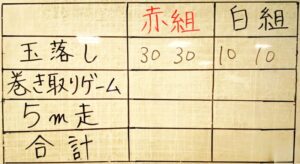 赤組 白組
玉落し 30 30 10 10
巻き取りゲーム
5m走
合計